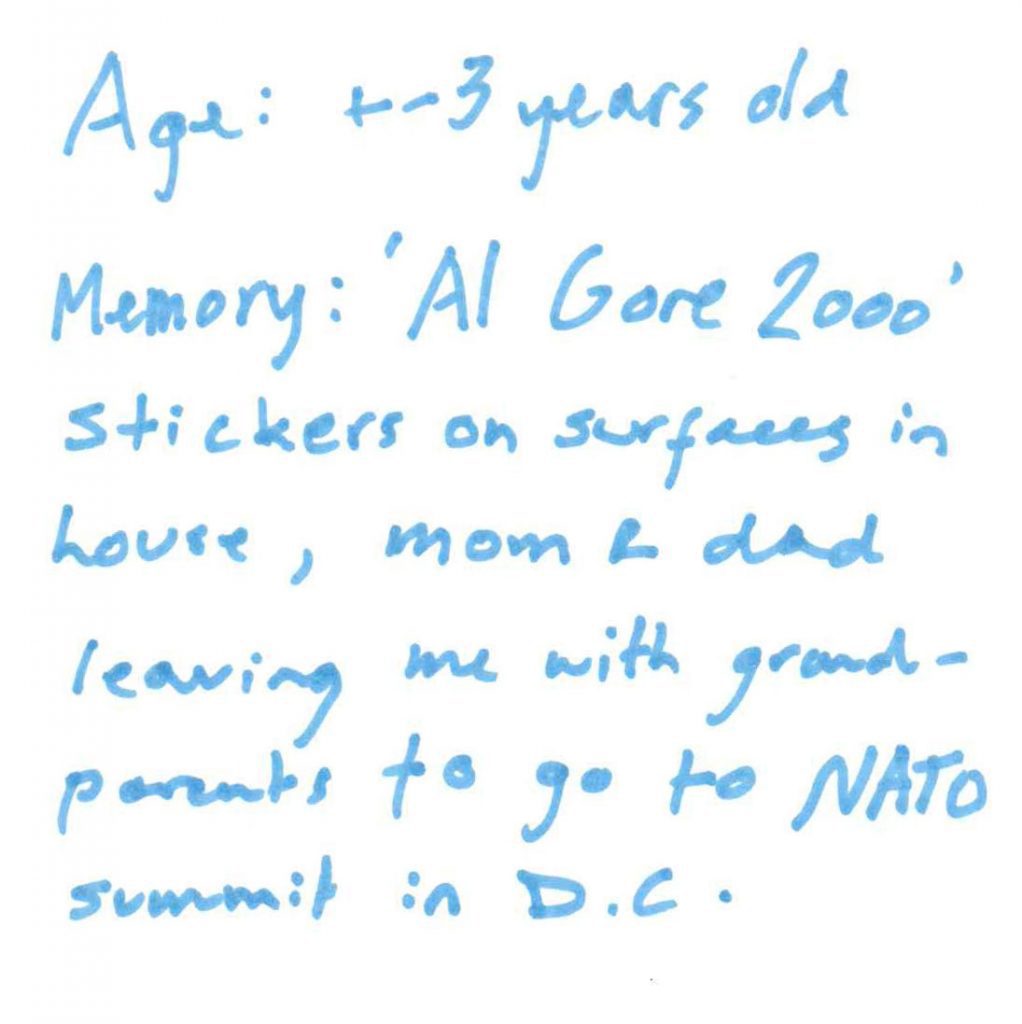 Age: +-3 years old
Memory: 'Al Gore 2000'
stickers on surfaces in
house, mom & dad
leaving me with grand-
parents to go to NATO
summit in D.C.